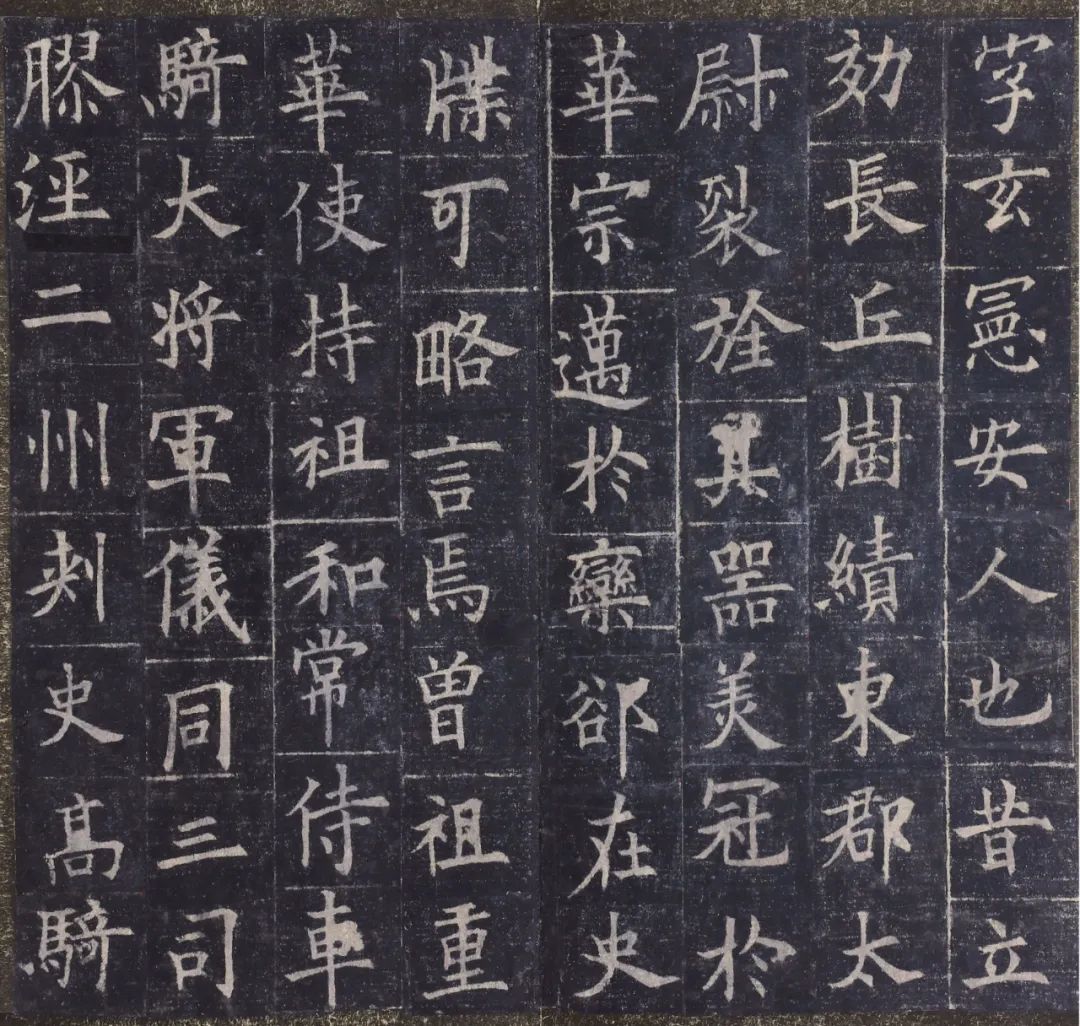 字玄憲安人也昔立
効長丘樹績東郡太
尉裂旌其器美冠於
華宗邁於欒郤在史
牒可略言焉曾祖重
華使持祖和常侍車
騎大将軍儀同三司
膠涇二州刾史髙騎